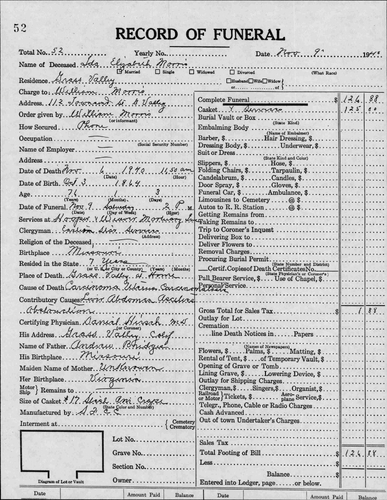 52
RECORD OF FUNERAL
Total No. 52 Yearly No. Date Nov. 9 1940
Name of Deceased Ida Elizabeth Morris
Married Single Widowed Divorced (What Race)
Residence Grass Valley Husband Wife Widow of
Charge to William Morris
Address 112 Townsend St G. Valley
Order given by William Morris
(or informant)
How Secured Phone
Occupation
(Social Security Number)
Name of Employer
Address
Date of Death Nov 6 1940 11:50 am
(Hour)
Date of Birth Oct 3 1864
Age 76 1 3
(Years) (Months) (Days)
Date of Funeral Nov 9 Saturday 2 P. M.
(Date) (Day of Week) (Hour)
Services at Hooper & Weaver Mortuary
Clergyman Christian Science Service
(Address)
Religion of the Deceased
Birthplace Missouri
Resided in the State 7 Years
(or U. S. City or County)
Place of Death Grass Valley at Home
Cause of Death Carcinoma Uterus Carcinomatosis
Contributory Causes Low Abdomen
Obstruction
Certifying Physician Daniel Hirsch MD
(or Coroner)
His Address Grass Valley, Calif
Name of Father Andrew Bridges
His Birthplace Missouri
Maiden Name of Mother Unknown
Her Birthplace Virginia
Motor Ship Remains to
Size of Casket
(State Color and Number)
Manufactured by
Interment at Cemetery Crematory
Lot No.
Grave No.
Section No.
Owner
Diagram of Lot or Vault
Complete Funeral $ 126 88
Casket & Service 125 00
Burial Vault or Box
(State Kind)
Embalming Body
(Name of Embalmer)
Barber, $ Hair Dressing, $
Dressing Body, $ Underwear, $
Suit or Dress
(State Kind and Color)
Slippers, $ Hose, $
Folding Chairs, $ Tarpaulin, $
Candelabrum, $ Candles, $
Door Spray, $ Gloves, $
Funeral Car, $ Ambulance, $
Limousines to Cemetery @ $
Autos to R. R. Station @ $
Getting Remains from
Taking Remains to
Trip to Coroner's Inquest
Delivering Box to
Deliver Flowers to
Removal Charges
Procuring Burial Permit
(State Number and District)
Certif. Copies of Death Certificate No.
(State Physician's or Coroner's)
Pall Bearer Service, $ Use of Chapel, $
Personal Service
Gross Total for Sales Tax $ 1 88
Outlay for Lot
Cremation
line Death Notices in Papers
(Names of Newspapers)
Flowers, $ Palms, $ Matting, $
Rental of Tent, $ of Temporary Vault, $
Opening of Grave or Tomb
Lining Grave, $ Lowering Device, $
Outlay for Shipping Charges
Clergyman, $ Singers, $ Organist, $
Railroad or Motor Tickets, $ Aeroplane Service, $
Telegr., Phone, Cable or Radio Charges
Cash Advanced
Out of town Undertaker's Charges
Sales Tax
Total Footing of Bill $ 126 88
Less
Balance $
Entered into Ledger, page or below.
Date Amount Paid Balance Date Amount Paid Balance